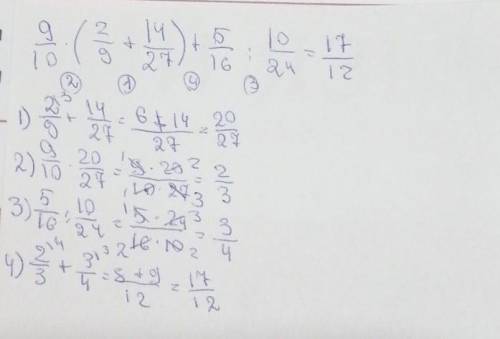 9/10 · (2/9 + 14/27) + 5/16 : 10/24 = 17/12
② ① ④ ③
1) 2/9 ³ + 14/27 = (6 + 14)/27 = 20/27
2) 9/10 · 20/27 = (¹9 · 20²)/(₁10 · 27₃) = 2/3
3) 5/16 : 10/24 = (¹5 · 24³)/(₂16 · 10₂) = 3/4
4) 2/3 ¹⁴ + 3/4 ¹³ = (8 + 9)/12 = 17/12